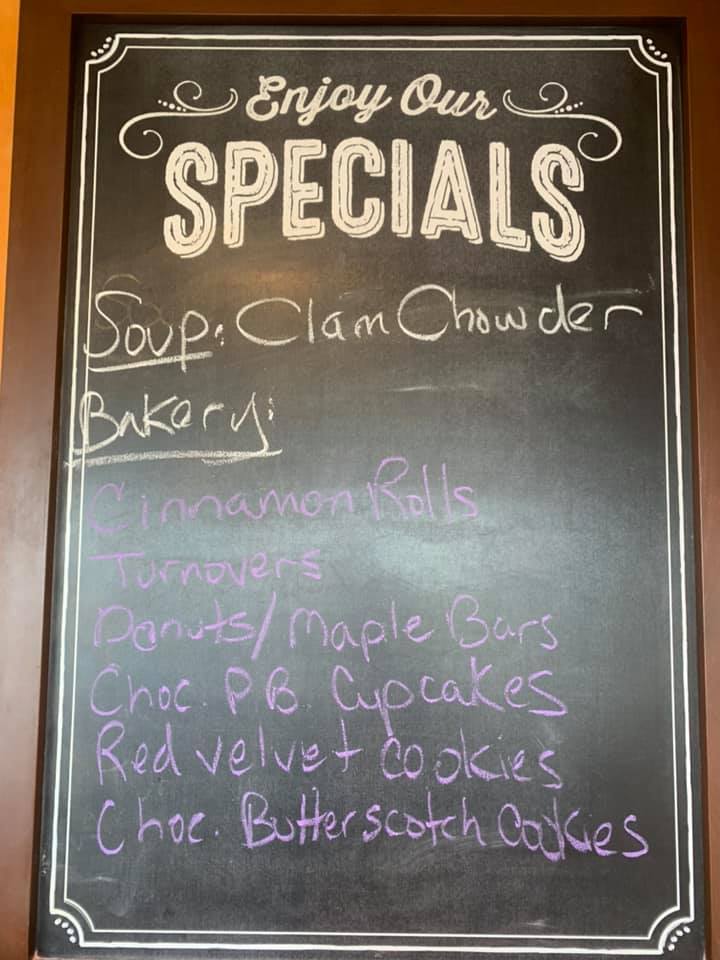 Enjoy Our
SPECIALS
Soup: Clam Chowder
Bakery:
Cinnamon Rolls
Turnovers
Donuts/Maple Bars
Choc. PB. Cupcakes
Red velvet cookies
Choc. Butterscotch Cookies